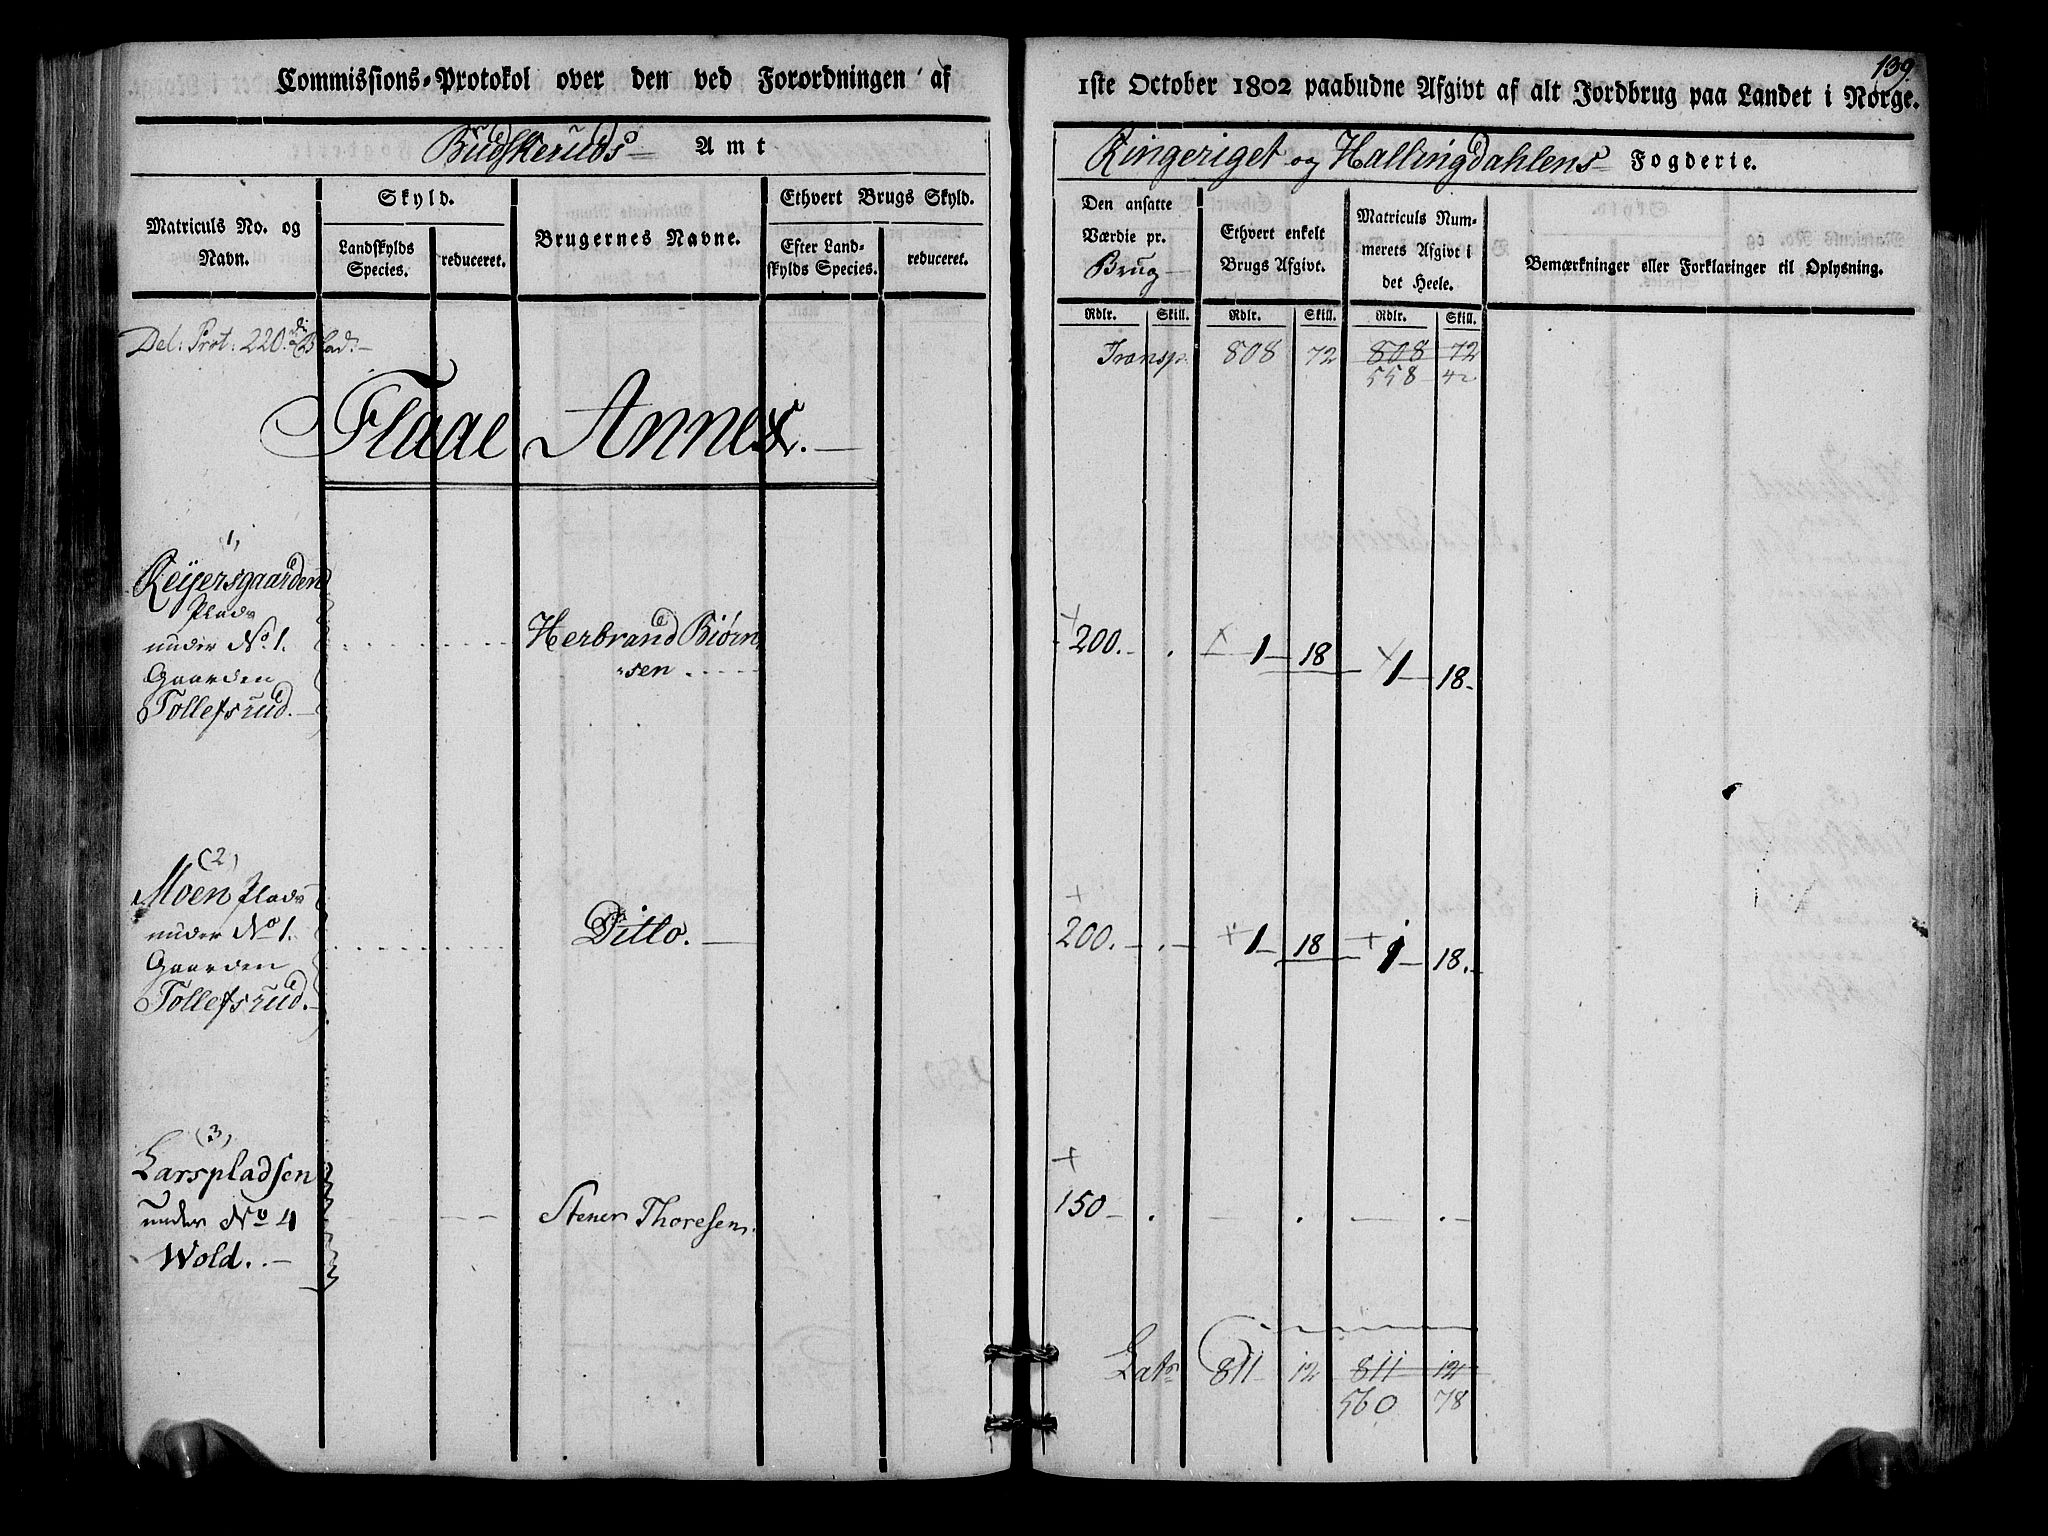 Commissions-Protokol over den ved Forordningen af
Budskeruds Amt
Matriculs No. og Navn.
Skyld.
Landskylds Species.
reduceret.
Brugernes Navne.
Ethvert Brugs Skyld.
Efter Landskylds Species.
reduceret.
Del: Prot: 220de Blad.
Flaae Annex.
1)
Reijersgaarden
Plads
under No 1.
Gaarden
Tollefsrud.
Herbrand Biørn
sen
(2)
Moen Plads
under No 1.
Gaarden
Tollefsrud.
Ditto.
(3)
Larspladsen
under No 4
Wold.
Stener Thoresen
139.
1ste October 1802 paabudne Afgivt af alt Jordbrug paa Landet i Norge.
Ringeriget og Hallingdahlens Fogderie.
Den ansatte Værdie pr. Brug
Ethvert enkelt Brugs Afgivt.
Matriculs Nummerets Afgivt i det Heele.
Bemærkninger eller Forklaringer til Oplysning.
Rdlr. Skill. Rdlr. Skill. Rdlr. Skill.
Transp. 808 72 808 72
558 42
+ 200. . + 1 18 + 1 18.
+ 200. . + 1 18 + 1 18.
+ 150 . . .
Lats 811 12 811 12
560 78